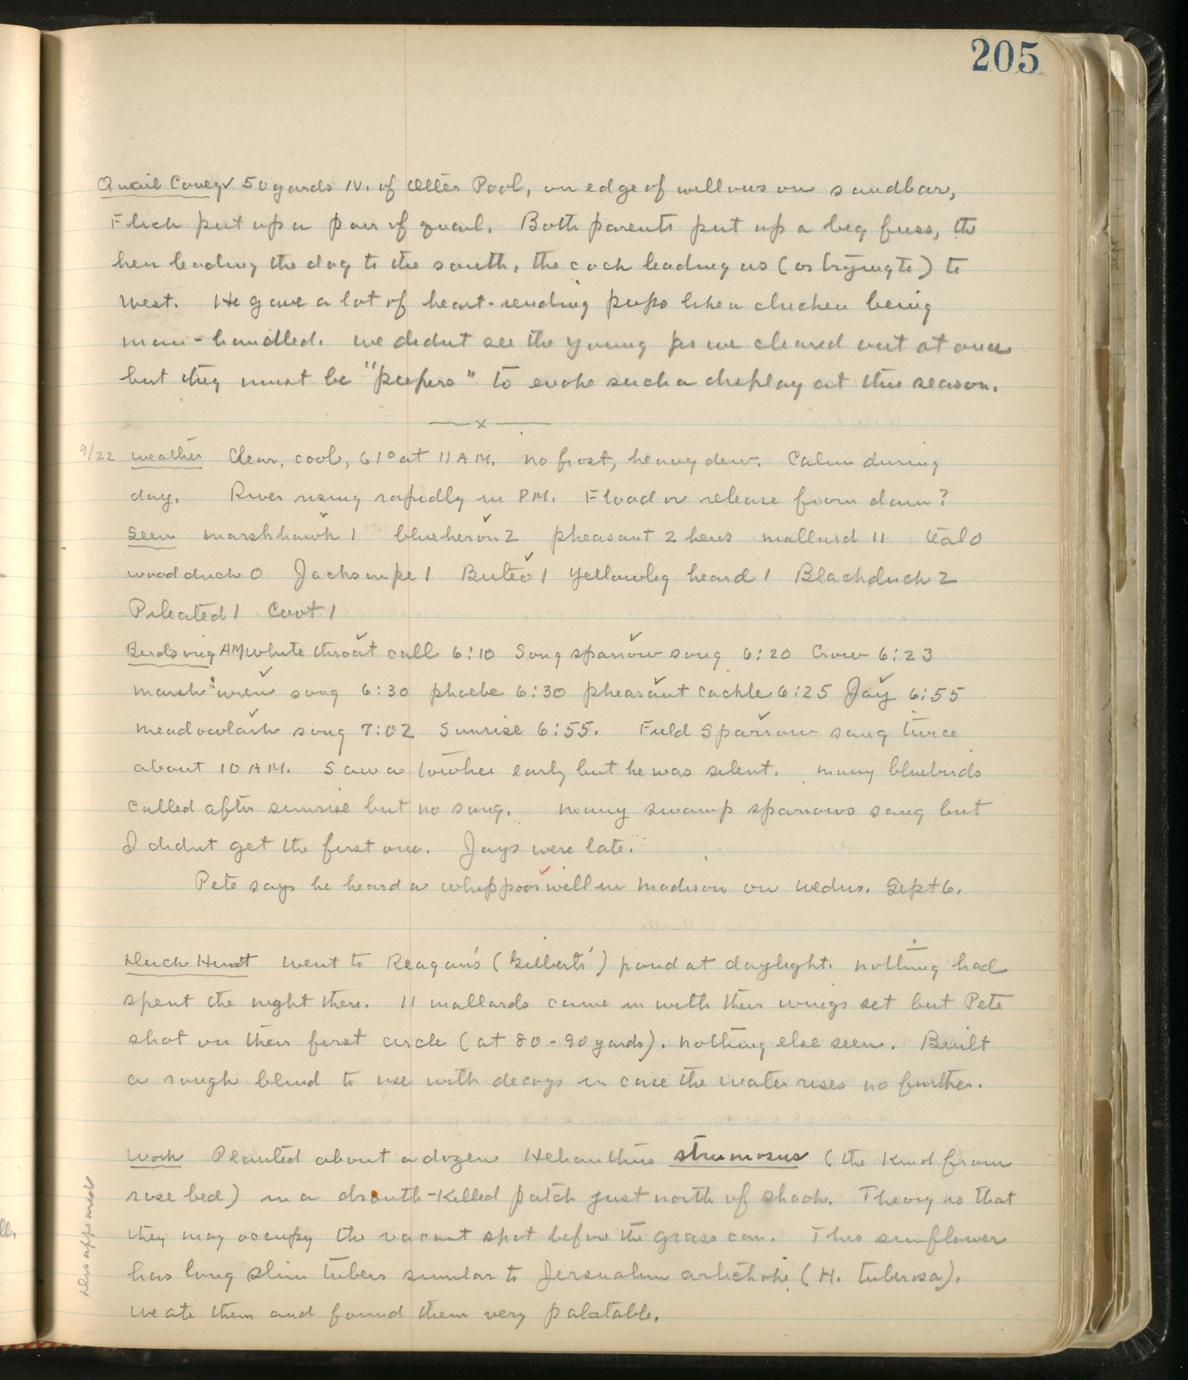 205
Quail Covey ✓ 50 yards N. of Otter Pool, on edge of willows on sandbar,
Flick put up a pair of quail. Both parents put up a big fuss, the
hen leading the dog to the south, the cock leading us (or trying to) to
west. He gave a lot of heart-rending peeps like a chicken being
man-handled. We didnt see the young for we cleared out at once
but they must be "peepers" to evoke such a display at this season.
—x—
9/22 Weather Clear, cool, 61° at 11 AM. No frost, heavy dew. Calm during
day. River rising rapidly in PM. Flood or release from dam?
Seen marsh hawk 1 blue heron 2 pheasant 2 hens mallard 11 teal 0
wood duck 0 Jacksnipe 1 Buteo 1 Yellowleg heard 1 Black duck 2
Pileated 1 Coot 1
Birdsong AM white throat call 6:10 Song sparrow song 6:20 Crow 6:23
marsh wren song 6:30 phoebe 6:30 pheasant cackle 6:25 Jay 6:55
meadowlark song 7:02 Sunrise 6:55. Field Sparrow sang twice
about 10 AM. Saw a towhee early but he was silent. Many bluebirds
called after sunrise but no song. Many swamp sparrows sang but
I didnt get the first one. Jays were late.
Pete says he heard a whippoorwill in Madison on Wednes. Sept 6.
Duck Hunt Went to Reagan's (Gilbert's) pond at daylight. Nothing had
spent the night there. 11 mallards came in with their wings set but Pete
shot on their first circle (at 80-90 yards). Nothing else seen. Built
a rough blind to use with decoys in case the water rises no further.
Work Planted about a dozen Helianthus strumosus (the kind from
rose bed) in a drouth-killed patch just north of shack. Theory is that
they may occupy the vacant spot before the grass can. This sunflower
has long slim tubers similar to Jerusalem artichoke (H. tuberosa).
We ate them and found them very palatable.
Disappeared